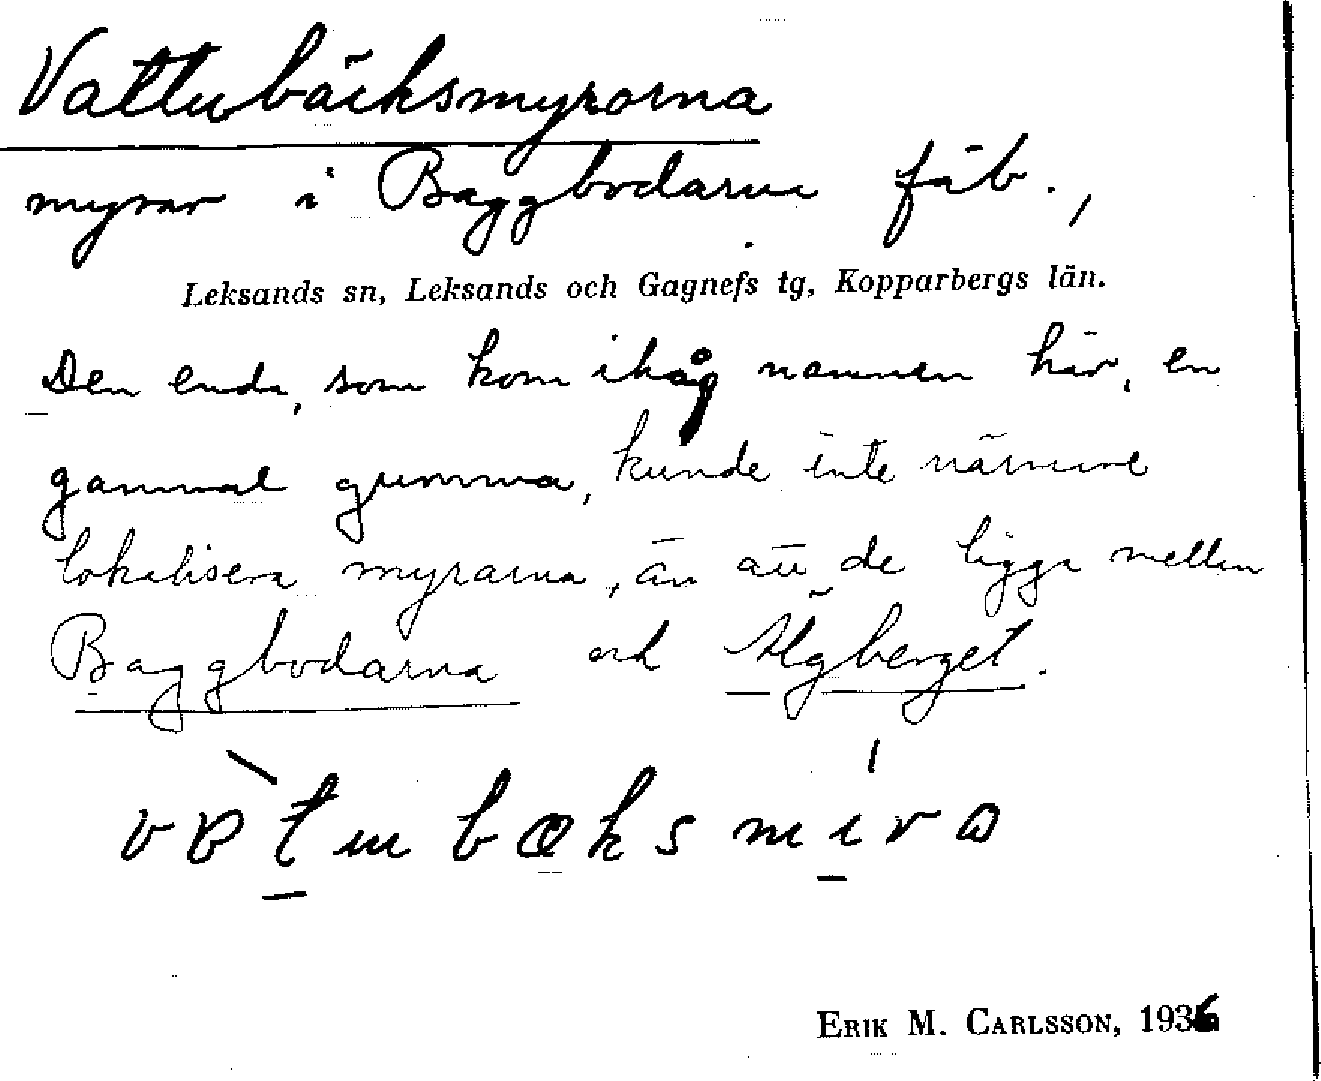 Vattubäcksmyrorna
myrar i Baggbodarna fäb.,
Leksands sn, Leksands och Gagnefs tg, Kopparbergs län.
Den enda, som kom ihåg namnen här, en
gammal gumma, kunde inte närmare
lokalisera myrarna, än att de ligga mellan
Baggbodarna och Älgberget.
ERIK M. CARLSSON, 1936